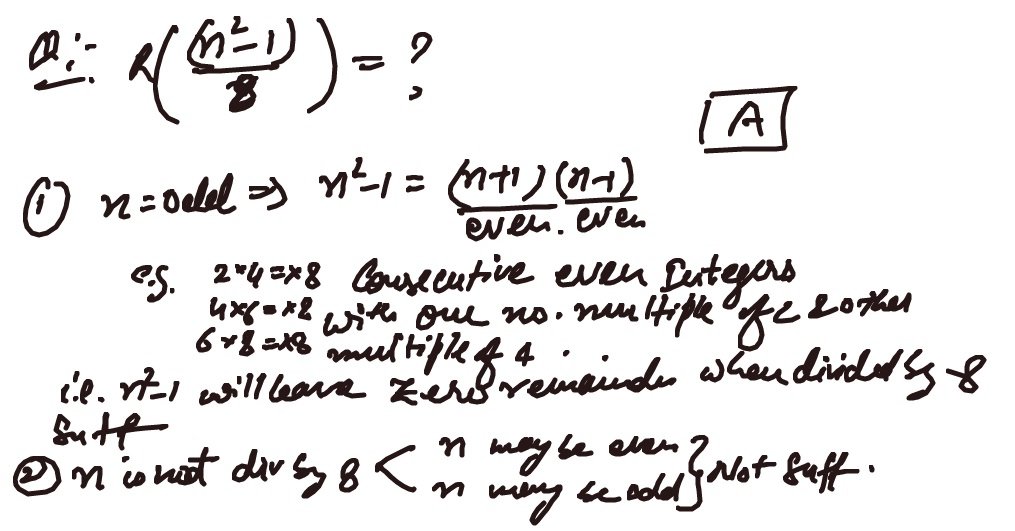 Q:- R((n²-1)/8) = ?
A
① n = odd ⇒ n²-1 = (n+1)(n-1)
even. even
e.g. 2×4 = ×8 Consecutive even Integers
4×6 = ×8 with one no. multiple of 2 & other
6×8 = ×8 multiple of 4.
i.e. n²-1 will leave zero remainder when divided by 8
Suff
② n is not div by 8 < n may be even } Not suff.
n may be odd